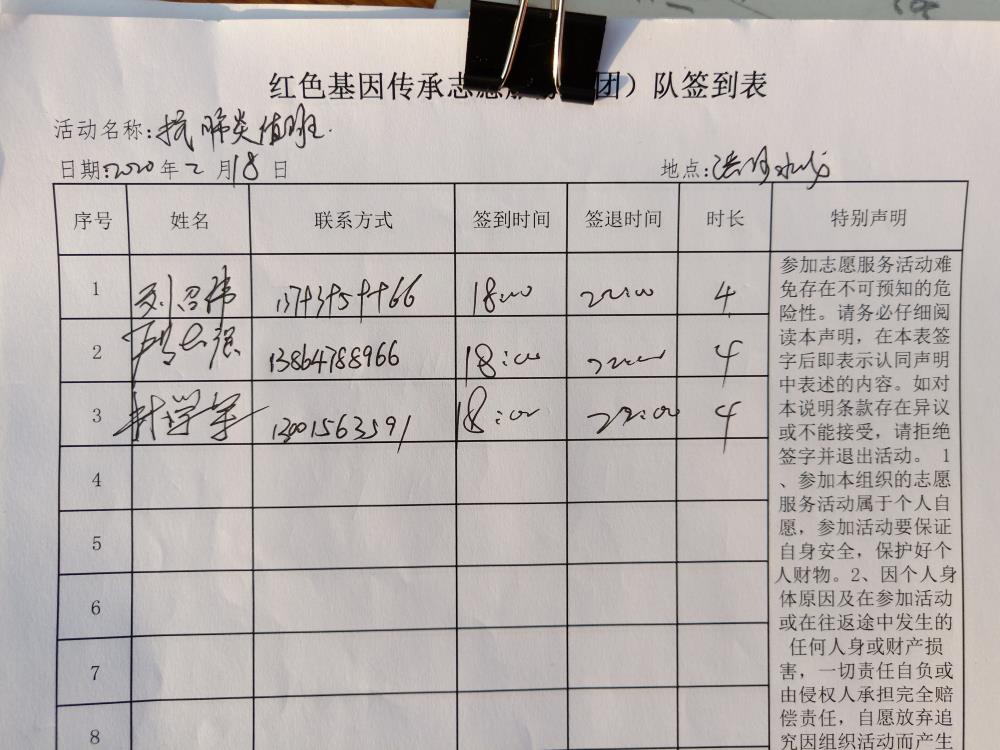 红色基因传承志愿服务 团）队签到表
活动名称:抗肺炎值班.
日期:2020年2月18日 地点:
序号 姓名 联系方式 签到时间 签退时间 时长 特别声明
1 刘召伟 18:00 22:00 4
2 强 13864788966 18:00 22:00 4
3 封学军 13001563591 18:00 22:00 4
4
5
6
7
8
参加志愿服务活动难
免存在不可预知的危
险性。请务必仔细阅
读本声明，在本表签
字后即表示认同声明
中表述的内容。如对
本说明条款存在异议
或不能接受，请拒绝
签字并退出活动。 1
、参加本组织的志愿
服务活动属于个人自
愿，参加活动要保证
自身安全，保护好个
人财物。2、因个人身
体原因及在参加活动
或在往返途中发生的
任何人身或财产损
害，一切责任自负或
由侵权人承担完全赔
偿责任，自愿放弃追
究因组织活动而产生